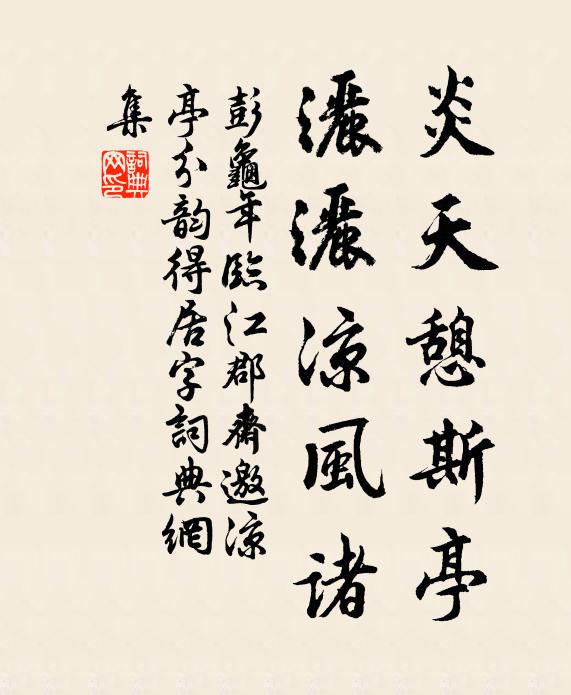 炎天憩斯亭
灑灑涼風諸
彭龜年臨江郡齋邀涼
亭分韵得居字詞典網
集
詞典網印